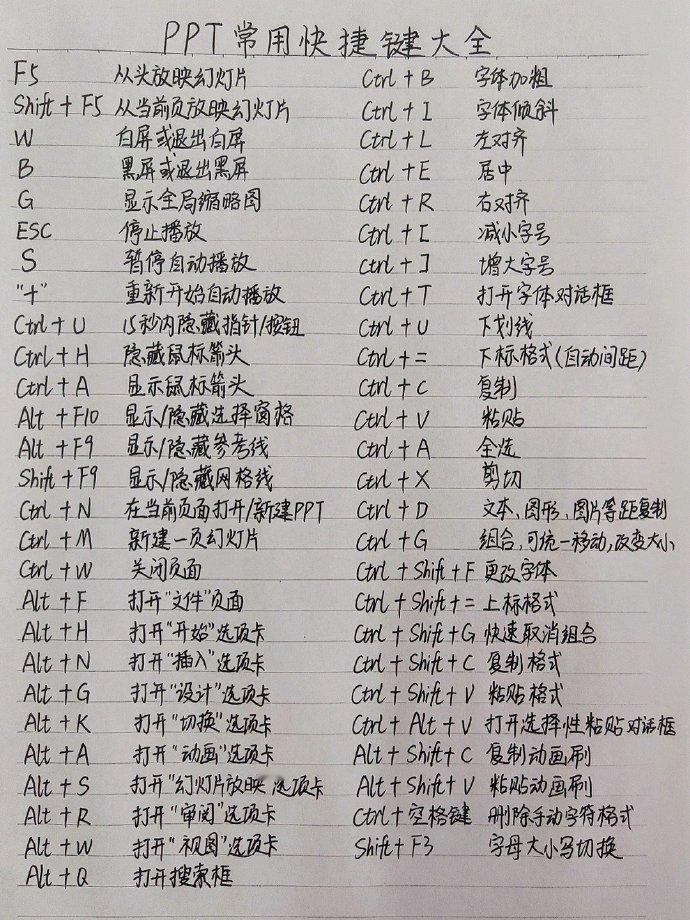 PPT常用快捷键大全
F5 从头放映幻灯片
Shift + F5 从当前页放映幻灯片
W 白屏或退出白屏
B 黑屏或退出黑屏
G 显示全局缩略图
ESC 停止播放
S 暂停自动播放
"+" 重新开始自动播放
Ctrl + U 15秒内隐藏指针/按钮
Ctrl + H 隐藏鼠标箭头
Ctrl + A 显示鼠标箭头
Alt + F10 显示/隐藏选择窗格
Alt + F9 显示/隐藏参考线
Shift + F9 显示/隐藏网格线
Ctrl + N 在当前页面打开/新建PPT
Ctrl + M 新建一页幻灯片
Ctrl + W 关闭页面
Alt + F 打开"文件"页面
Alt + H 打开"开始"选项卡
Alt + N 打开"插入"选项卡
Alt + G 打开"设计"选项卡
Alt + K 打开"切换"选项卡
Alt + A 打开"动画"选项卡
Alt + S 打开"幻灯片放映"选项卡
Alt + R 打开"审阅"选项卡
Alt + W 打开"视图"选项卡
Alt + Q 打开搜索框
Ctrl + B 字体加粗
Ctrl + I 字体倾斜
Ctrl + L 左对齐
Ctrl + E 居中
Ctrl + R 右对齐
Ctrl + [ 减小字号
Ctrl + ] 增大字号
Ctrl + T 打开字体对话框
Ctrl + U 下划线
Ctrl + = 下标格式(自动间距)
Ctrl + C 复制
Ctrl + V 粘贴
Ctrl + A 全选
Ctrl + X 剪切
Ctrl + D 文本、图形、图片等距复制
Ctrl + G 组合,可统一移动,改变大小
Ctrl + Shift + F 更改字体
Ctrl + Shift + = 上标格式
Ctrl + Shift + G 快速取消组合
Ctrl + Shift + C 复制格式
Ctrl + Shift + V 粘贴格式
Ctrl + Alt + V 打开选择性粘贴对话框
Alt + Shift + C 复制动画刷
Alt + Shift + V 粘贴动画刷
Ctrl + 空格键 删除手动字符格式
Shift + F3 字母大小写切换